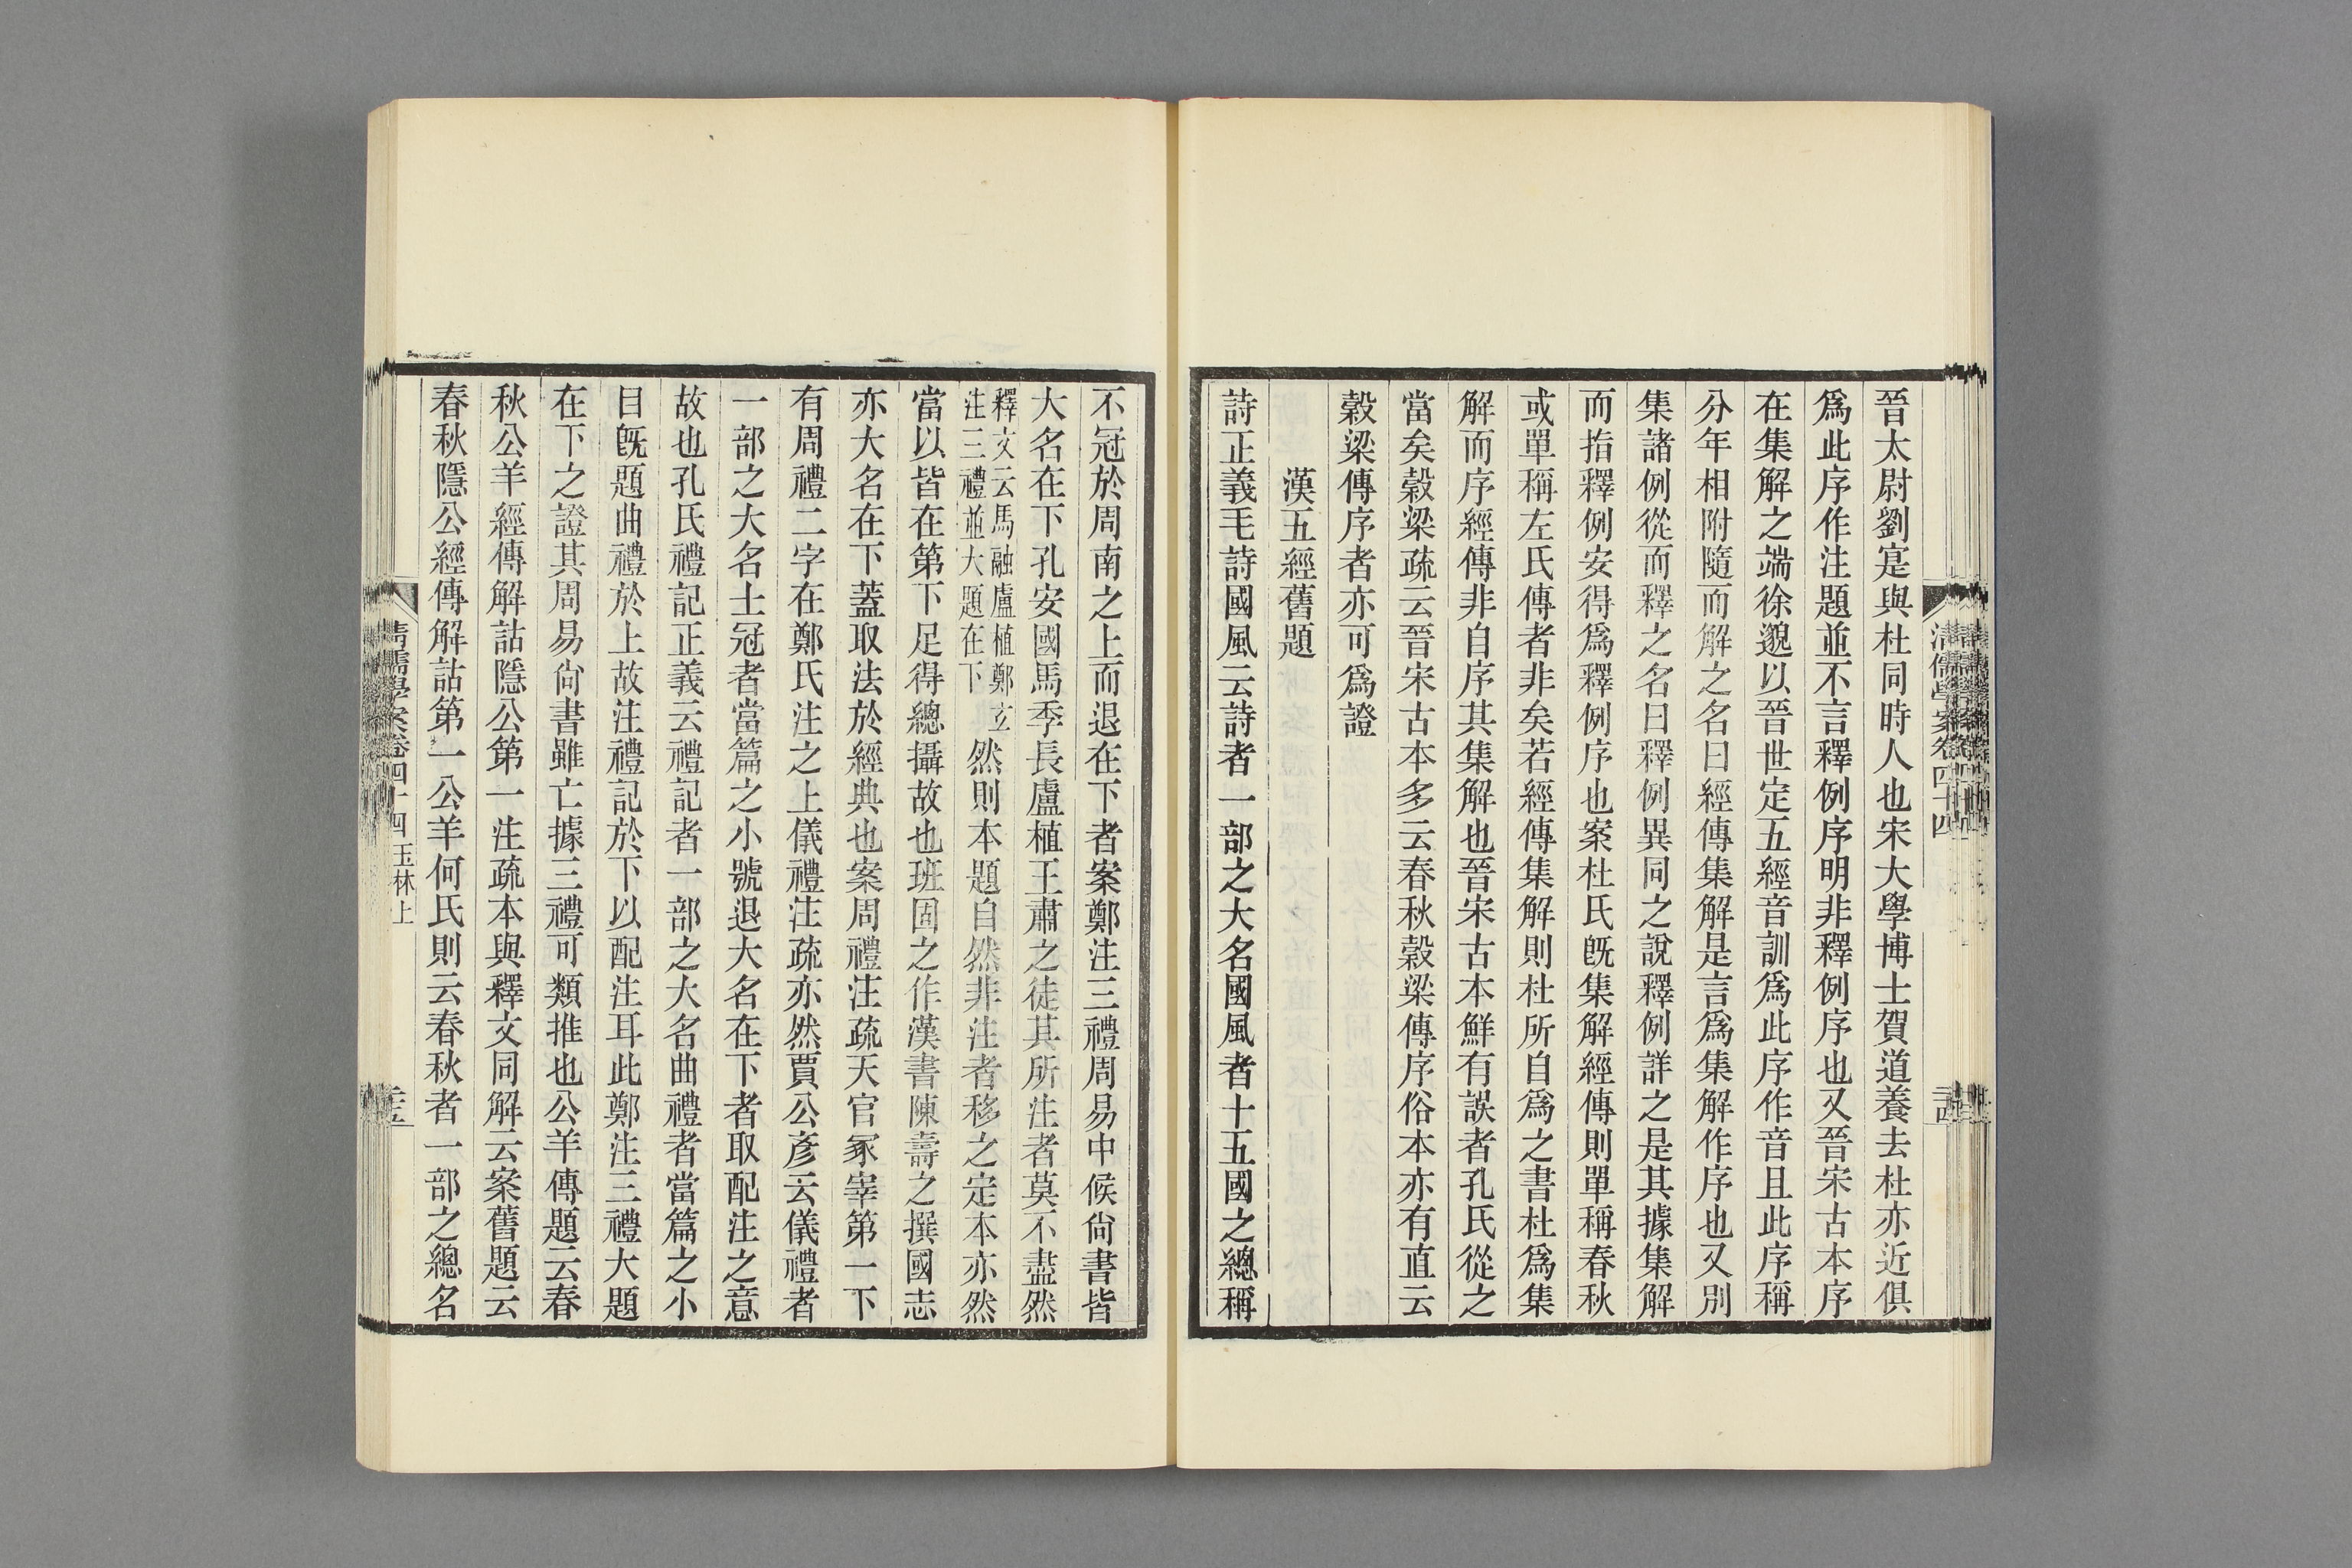 晉太尉劉寔與杜同時人也宋大學博士賀道養去杜亦近俱
爲此序作注題並不言釋例序明非釋例序也又晉宋古本序
在集解之端徐邈以晉世定五經音訓爲此序作音且此序稱
分年相附隨而解之名曰經傳集解是言爲集解作序也又別
集諸例從而釋之名曰釋例異同之說釋例詳之是其據集解
而指釋例安得爲釋例序也案杜氏旣集解經傳則單稱春秋
或單稱左氏傳者非矣若經傳集解則杜所自爲之書杜爲集
解而序經傳非自序其集解也晉宋古本鮮有誤者孔氏從之
當矣穀梁疏云晉宋古本多云春秋穀梁傳序俗本亦有直云
穀梁傳序者亦可爲證
漢五經舊題
詩正義毛詩國風云詩者一部之大名國風者十五國之總稱
清儒學案卷四十四
不冠於周南之上而退在下者案鄭注三禮周易中候尙書皆
大名在下孔安國馬季長盧植王肅之徒其所注者莫不盡然
釋文云馬融盧植鄭玄
注三禮並大題在下
然則本題自然非注者移之定本亦然
當以皆在第下足得總攝故也班固之作漢書陳壽之撰國志
亦大名在下蓋取法於經典也案周禮注疏天官冢宰第一下
有周禮二字在鄭氏注之上儀禮注疏亦然賈公彥云儀禮者
一部之大名士冠者當篇之小號退大名在下者取配注之意
故也孔氏禮記正義云禮記者一部之大名曲禮者當篇之小
目旣題曲禮於上故注禮記於下以配注耳此鄭注三禮大題
在下之證其周易尙書雖亡據三禮可類推也公羊傳題云春
秋公羊經傳解詁隱公第一注疏本與釋文同解云案舊題云
春秋隱公經傳解詁第一公羊何氏則云春秋者一部之總名
清儒學案卷四十四 玉林上